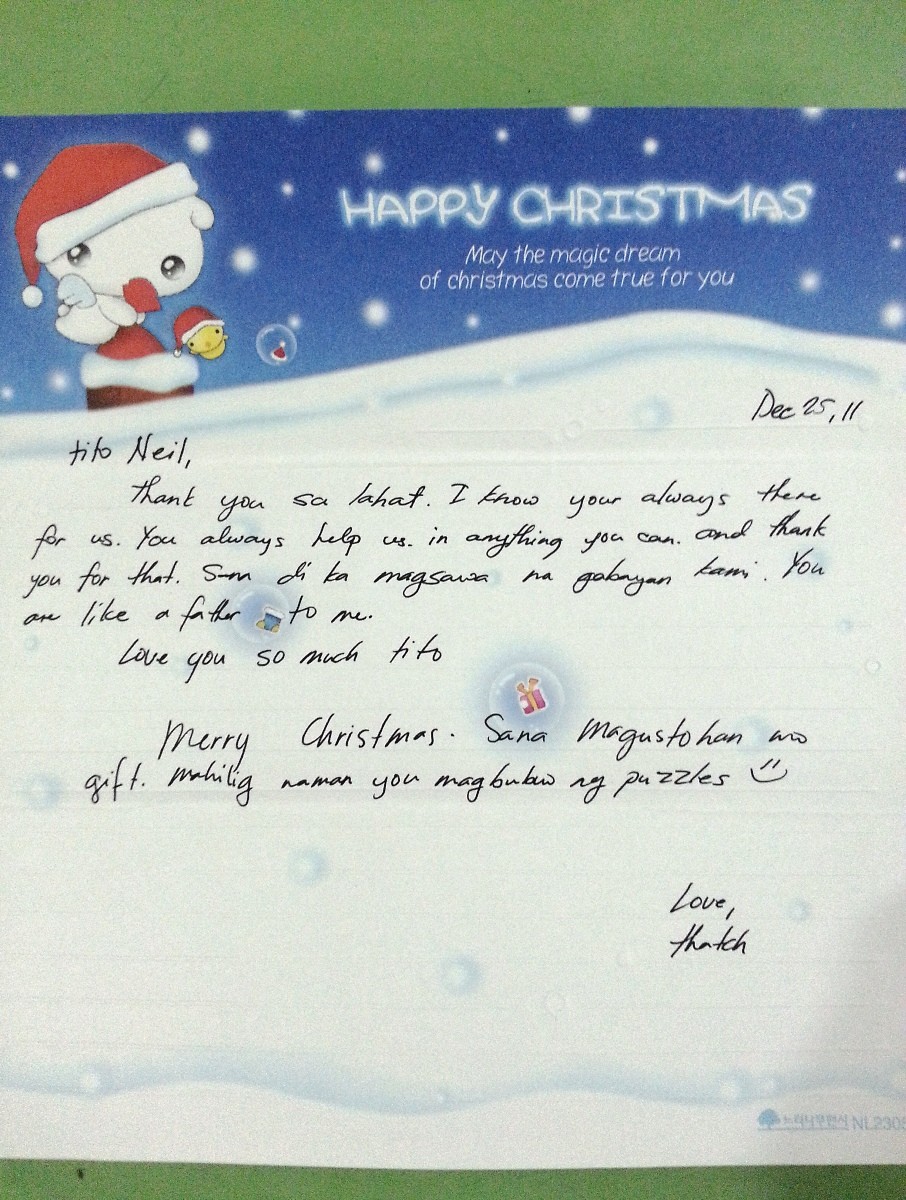 HAPPY CHRISTMAS
May the magic dream
of christmas come true for you
Dec 25, 11
tito Neil,
Thank you sa lahat. I know your always there
for us. You always help us. in anything you can. and thank
you for that. di ka magsawa na gabayan kami. You
are like a father to me.
Love you so much tito
Merry Christmas. Sana Magustohan mo
gift. mahilig naman you magbubuo ng puzzles
Love,
thatch
NL2305